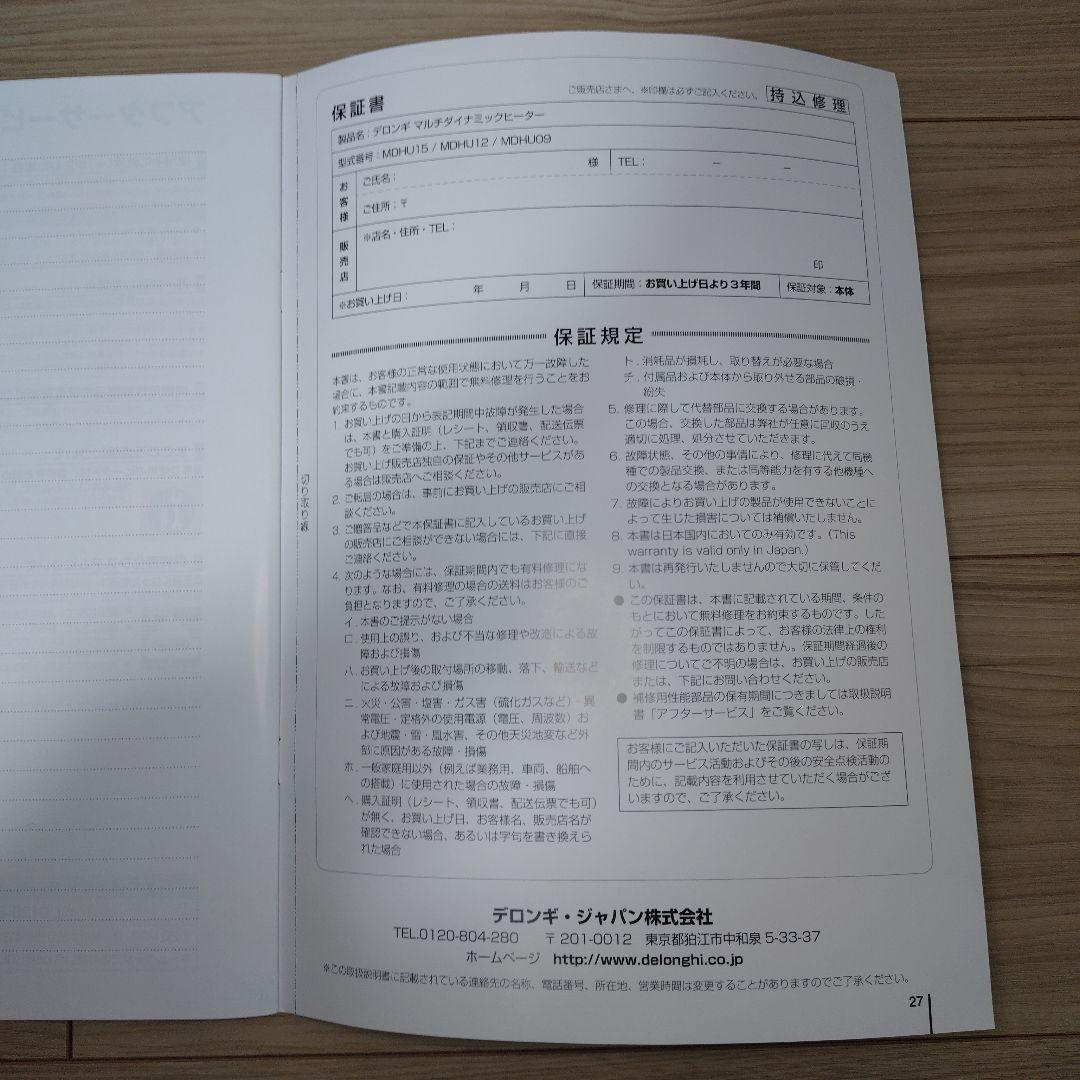 保証書
ご販売店さまへ、※印欄は必ずご記入ください。 持込修理
製品名：デロンギ マルチダイナミックヒーター
型式番号：MDHU15 / MDHU12 / MDHU09
お客様 ご氏名： 様 TEL： － －
ご住所：〒
販売店 ※店名・住所・TEL：
印
※お買い上げ日： 年 月 日 保証期間：お買い上げ日より３年間 保証対象：本体
保証規定
本書は、お客様の正常な使用状態において万一故障した
場合に、本書記載内容の範囲で無料修理を行うことをお
約束するものです。
1. お買い上げの日から表記期間中故障が発生した場合
は、本書と購入証明（レシート、領収書、配送伝票
でも可）をご準備の上、下記までご連絡ください。
お買い上げ販売店独自の保証やその他サービスがあ
る場合は販売店へご相談ください。
2. ご転居の場合は、事前にお買い上げの販売店にご相
談ください。
3. ご贈答品などで本保証書に記入しているお買い上げ
の販売店にご相談ができない場合には、下記に直接
ご連絡ください。
4. 次のような場合には、保証期間内でも有料修理にな
ります。なお、有料修理の場合の送料はお客様のご
負担となりますので、ご了承ください。
イ. 本書のご提示がない場合
ロ. 使用上の誤り、および不当な修理や改造による故
障および損傷
ハ. お買い上げ後の取付場所の移動、落下、輸送など
による故障および損傷
ニ. 火災・公害・塩害・ガス害（硫化ガスなど）・異
常電圧・定格外の使用電源（電圧、周波数）お
よび地震・雷・風水害、その他天災地変など外
部に原因がある故障・損傷
ホ. 一般家庭用以外（例えば業務用、車両、船舶へ
の搭載）に使用された場合の故障・損傷
ヘ. 購入証明（レシート、領収書、配送伝票でも可）
が無く、お買い上げ日、お客様名、販売店名が
確認できない場合、あるいは字句を書き換えら
れた場合
ト. 消耗品が損耗し、取り替えが必要な場合
チ. 付属品および本体から取り外せる部品の破損・
紛失
5. 修理に際して代替部品に交換する場合があります。
この場合、交換した部品は弊社が任意に回収のうえ
適切に処理、処分させていただきます。
6. 故障状態、その他の事情により、修理に代えて同機
種での製品交換、または同等能力を有する他機種へ
の交換となる場合があります。
7. 故障によりお買い上げの製品が使用できないことに
よって生じた損害については補償いたしません。
8. 本書は日本国内においてのみ有効です。(This
warranty is valid only in Japan.)
9. 本書は再発行いたしませんので大切に保管してくださ
い。
● この保証書は、本書に記載されている期間、条件の
もとにおいて無料修理をお約束するものです。した
がってこの保証書によって、お客様の法律上の権利
を制限するものではありません。保証期間経過後の
修理についてご不明の場合は、お買い上げの販売店
または、下記にお問い合わせください。
● 補修用性能部品の保有期間につきましては取扱説明
書「アフターサービス」をご覧ください。
お客様にご記入いただいた保証書の写しは、保証期
間内のサービス活動およびその後の安全点検活動の
ために、記載内容を利用させていただく場合がござ
いますので、ご了承ください。
切り取り線
デロンギ・ジャパン株式会社
TEL.0120-804-280 〒201-0012 東京都狛江市中和泉 5-33-37
ホームページ http://www.delonghi.co.jp
※この取扱説明書に記載されている連絡先の名称、電話番号、所在地、営業時間は変更することがありますのでご了承ください。
27